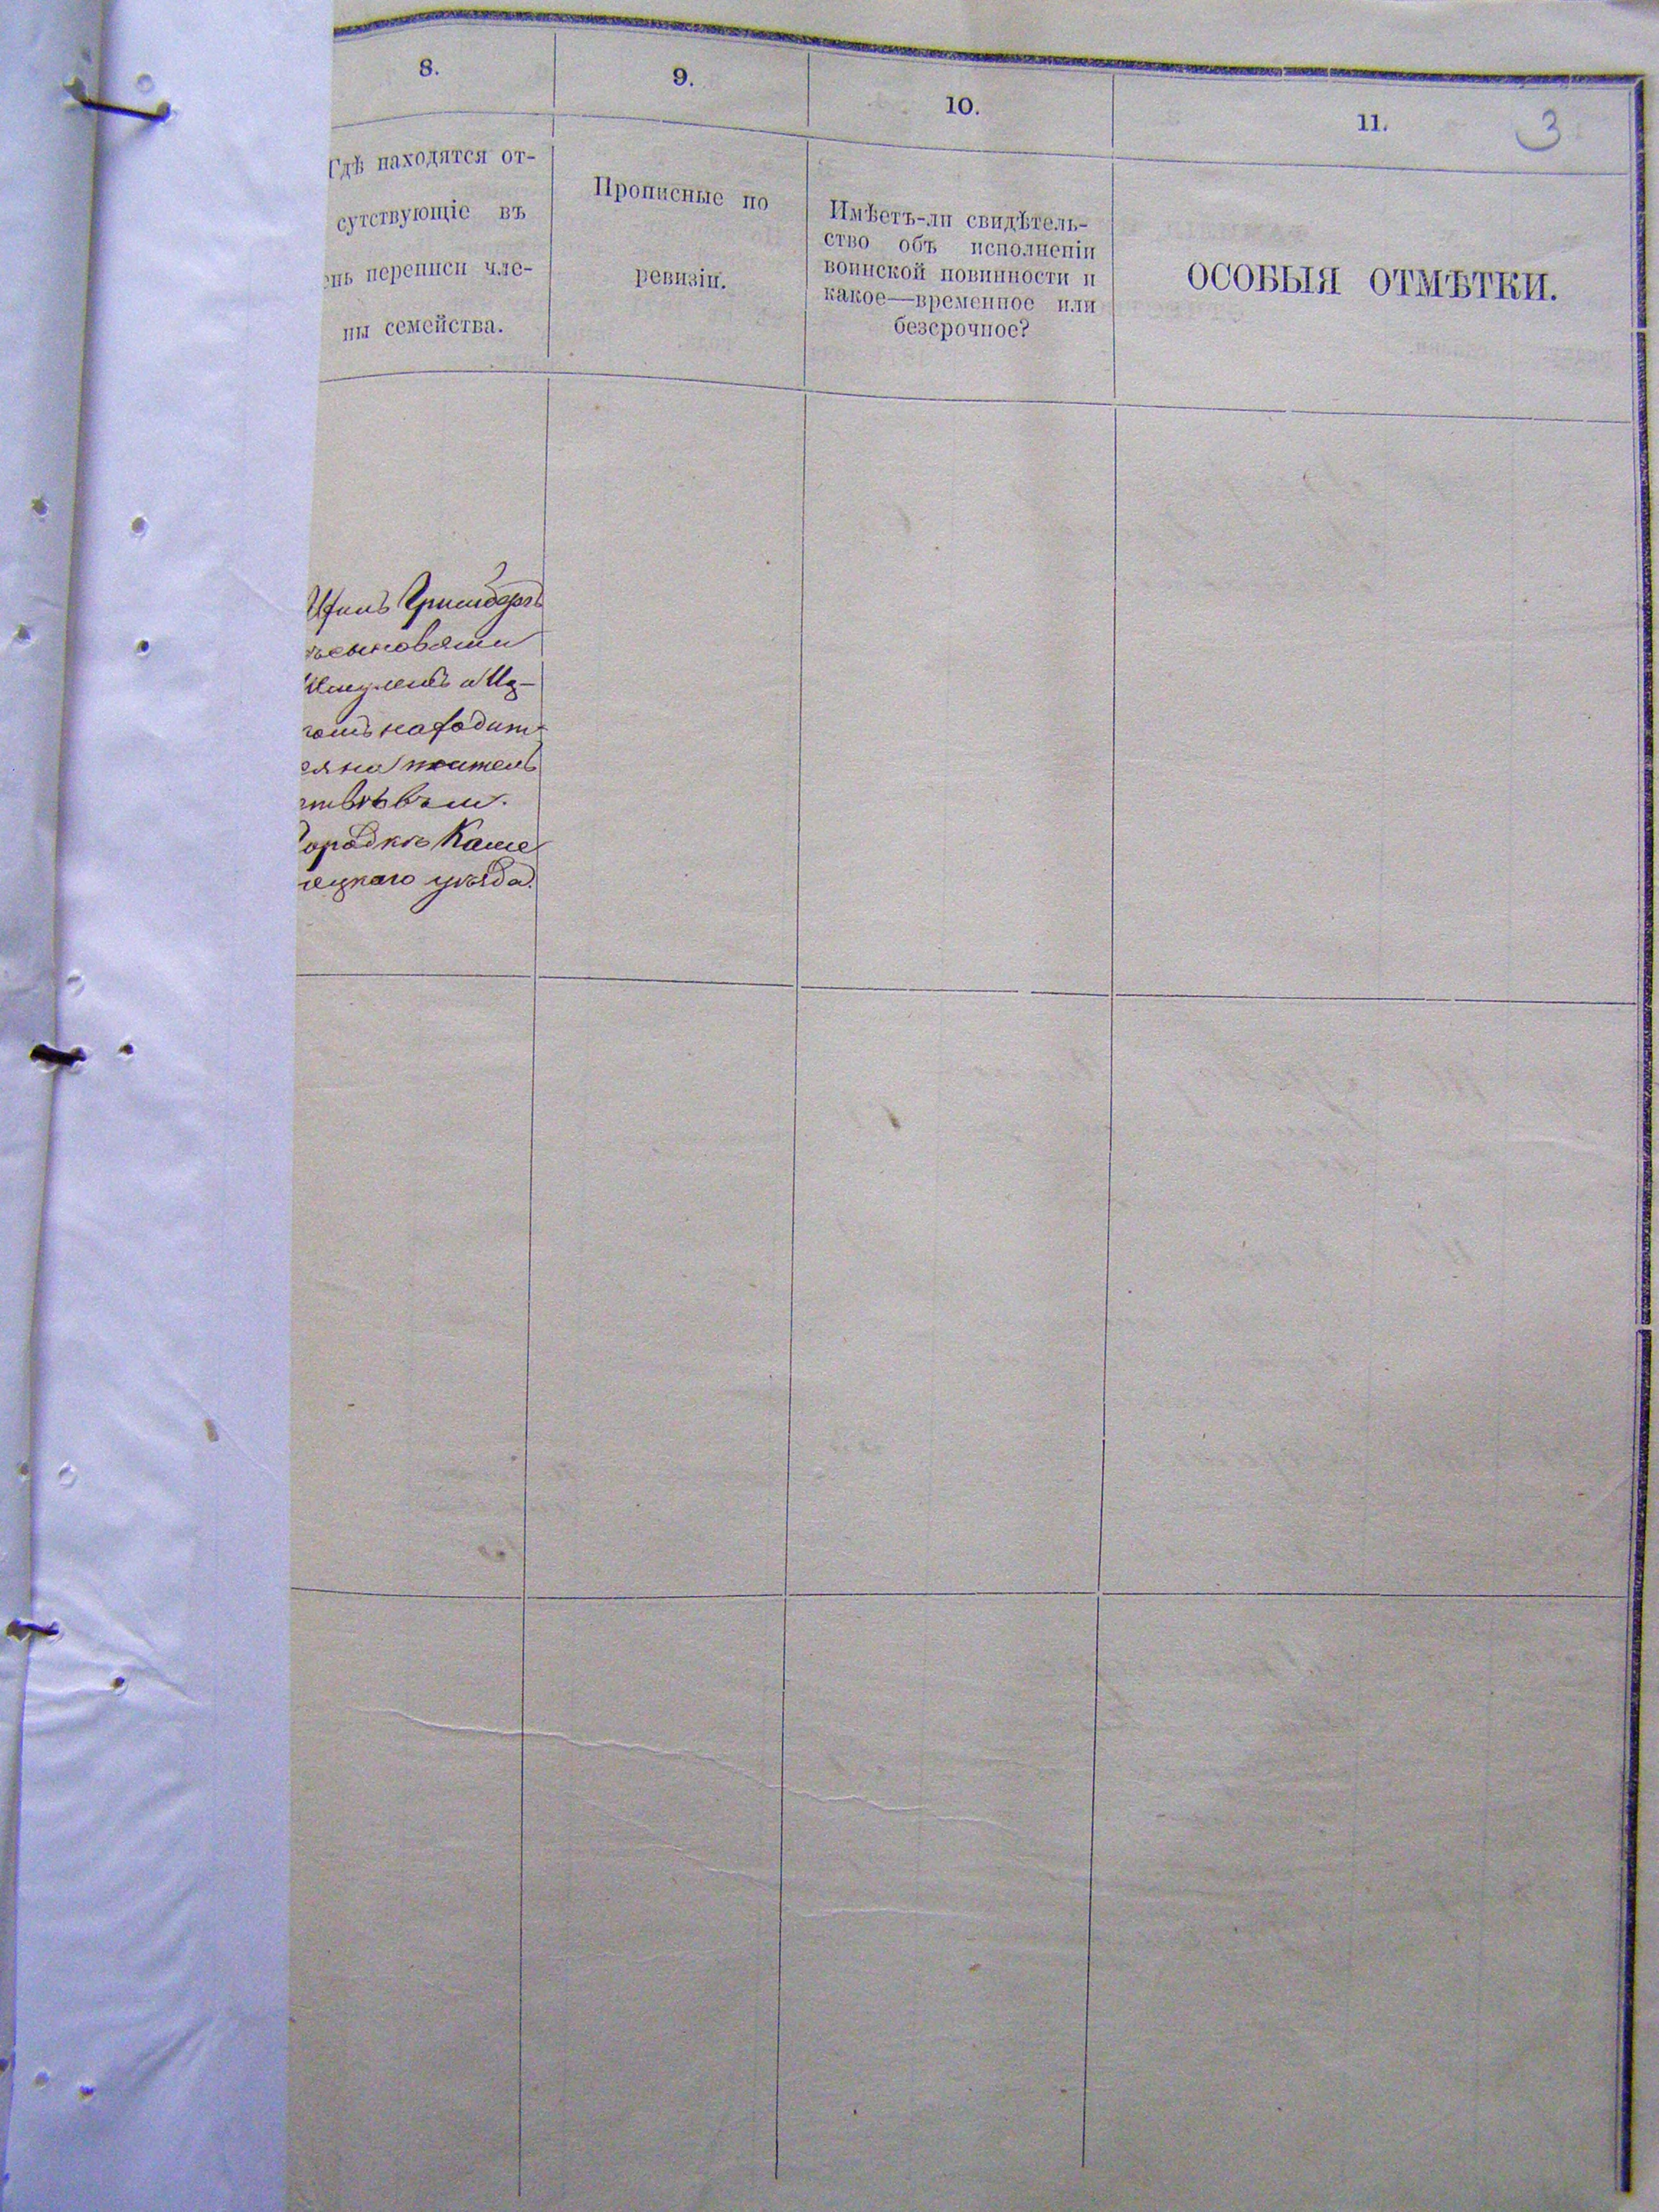 8.
9.
10.
11.
3
Гдѣ находятся от-
сутствующіе въ
ень переписи чле-
ны семейства.
Прописные по
ревизіи.
Имѣетъ-ли свидѣтель-
ство объ исполненіи
воинской повинности и
какое—временное или
безсрочное?
ОСОБЫЯ ОТМѢТКИ.
Гринбергъ
сыновьями
Шмулемъ и Иц-
находит-
ся на житель
ствѣ въ м.
Городкѣ Каме
нецкаго уѣзда.